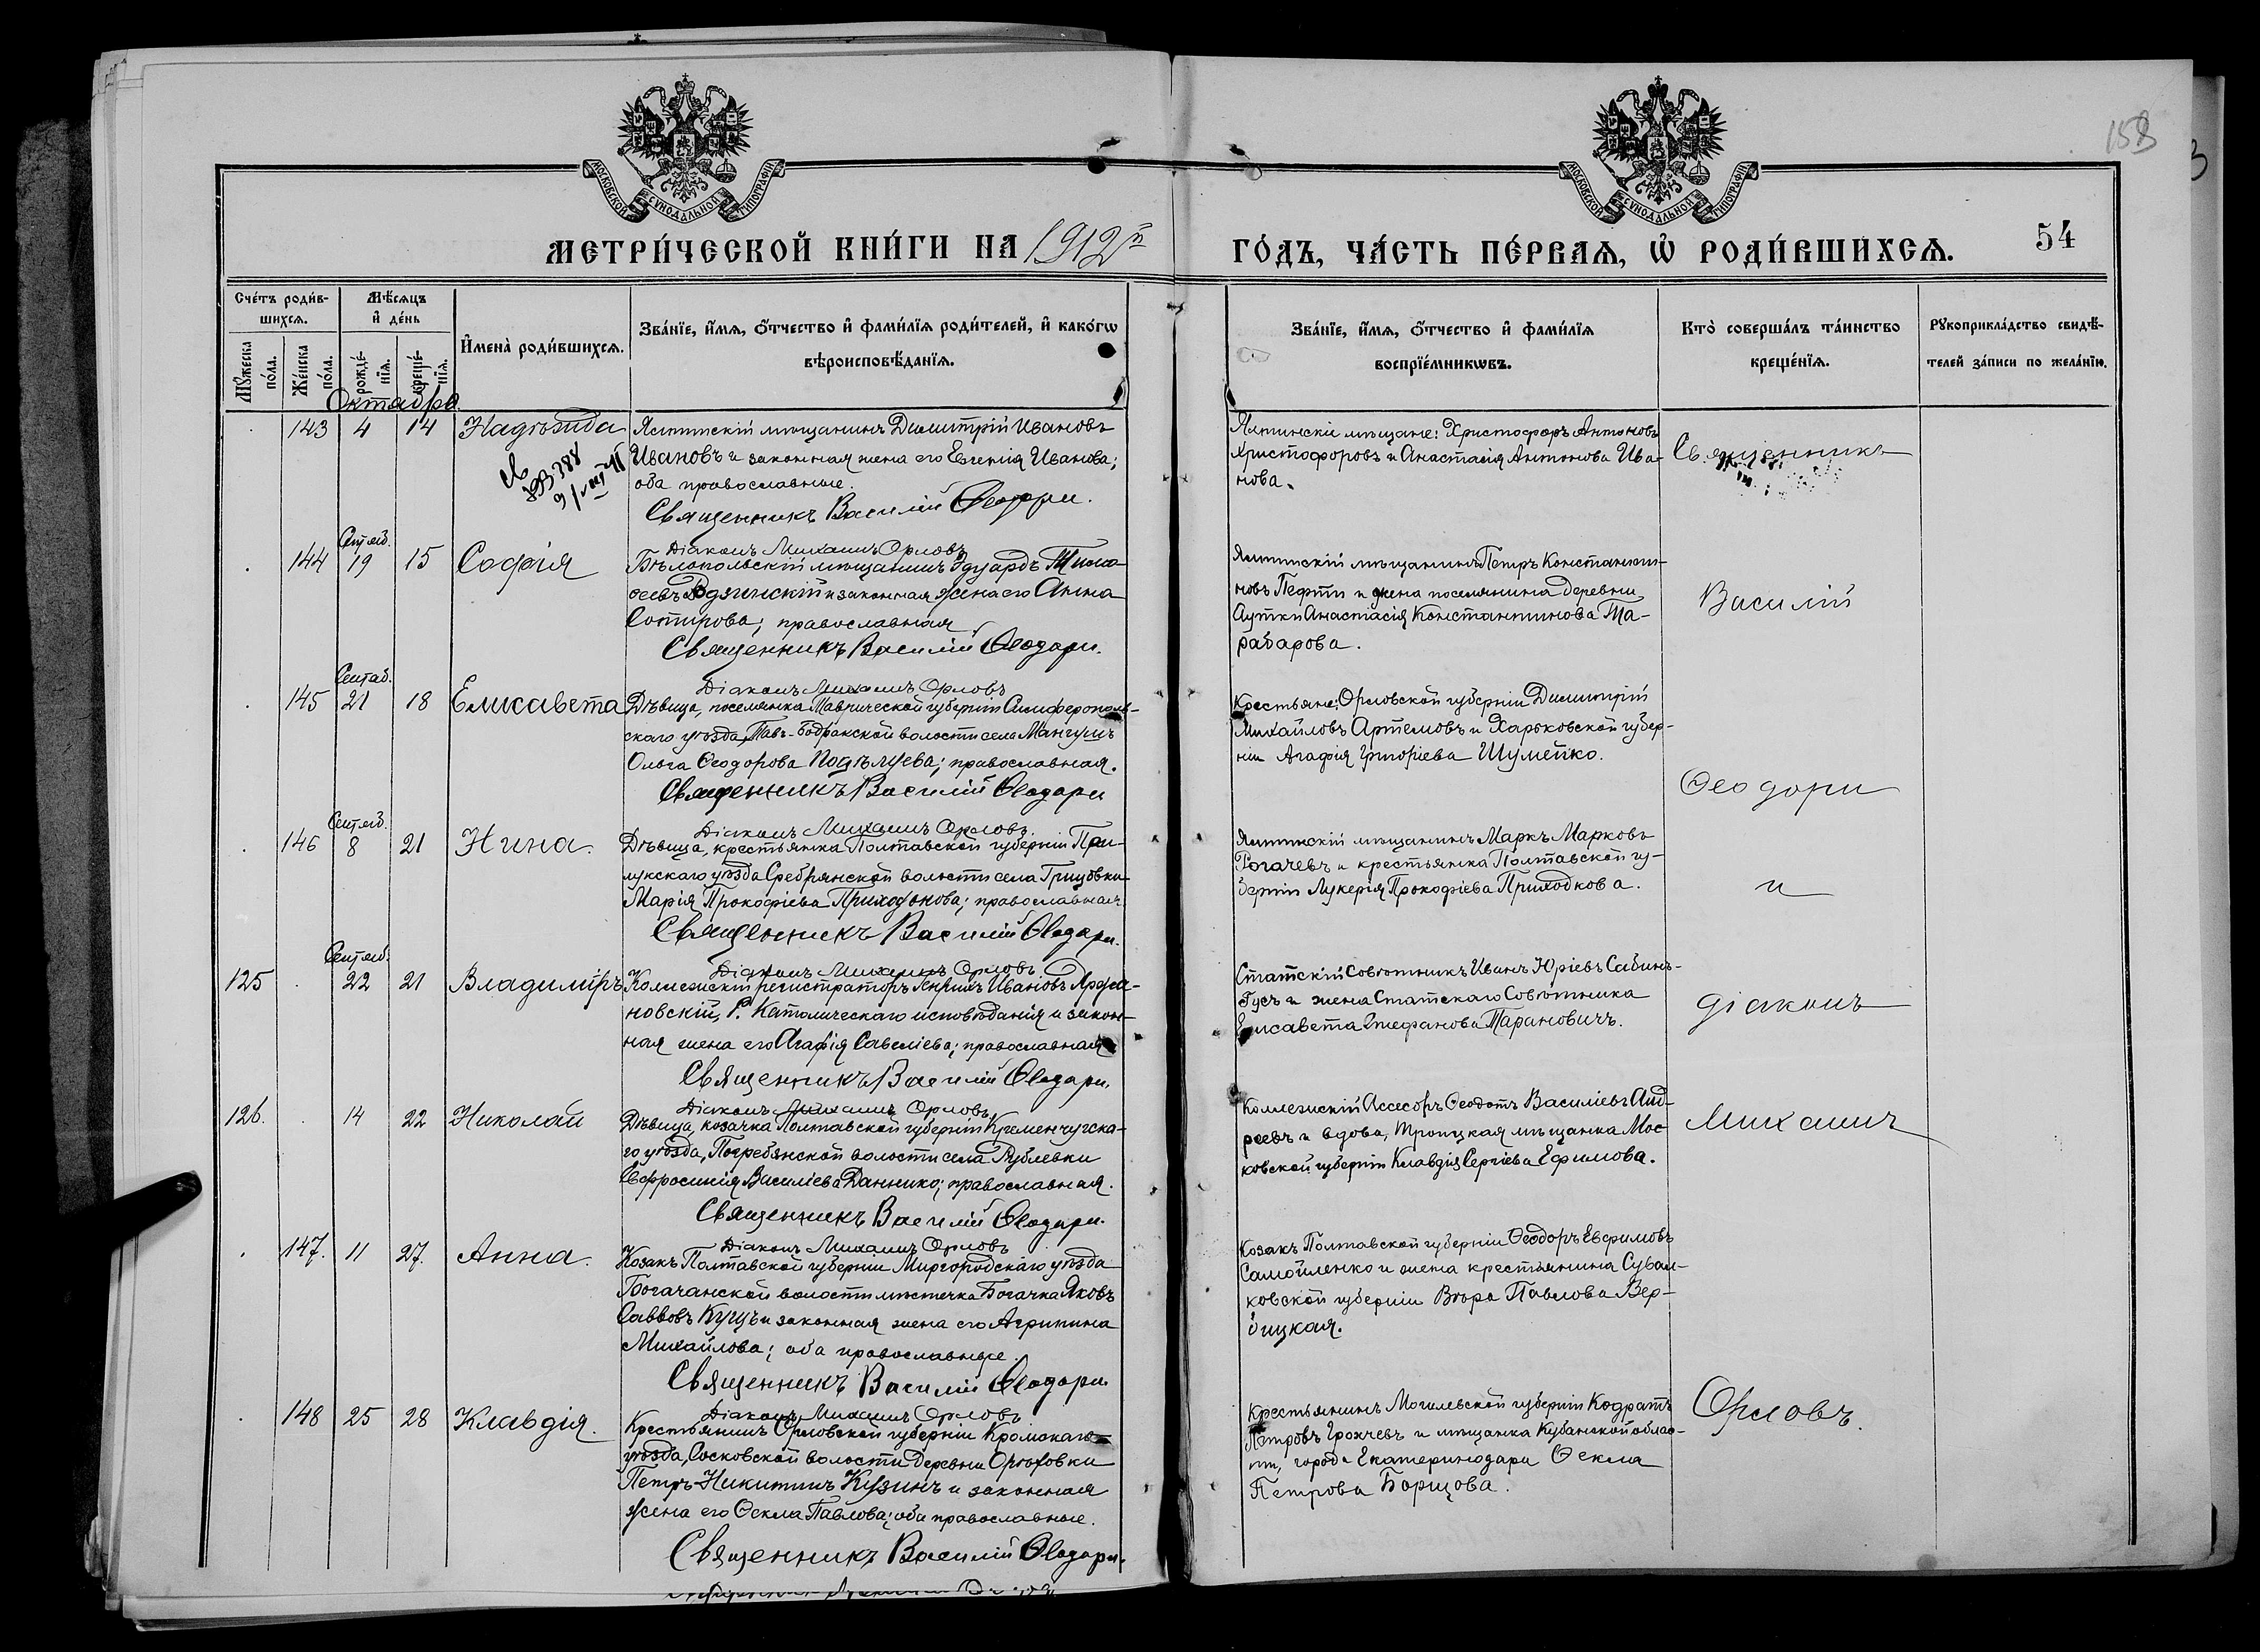 153
МОСКОВСКОЙ СѴНОДАЛЬНОЙ ТИПОГРАФІИ
МОСКОВСКОЙ СѴНОДАЛЬНОЙ ТИПОГРАФІИ
МЕТРИ́ЧЕСКОЙ КНИ́ГИ НА 1912й ГО́ДЪ, ЧА́СТЬ ПЕ́РВАѦ, Ѡ҆ РОДИ́ВШИХСѦ. 54
Сче́тъ роди́в-
шихсѧ.
Мꙋ́жеска по́ла.
Же́нска по́ла.
Мѣ́сѧцъ
и҆ де́нь
рожде́-
нїѧ.
креще́-
нїѧ.
И҆мена̀ роди́вшихсѧ.
Зва́нїе, и҆́мѧ, ѻ҆́тчество и҆ фами́лїѧ роди́телей, и҆ како́гѡ
вѣроисповѣ́данїѧ.
Зва́нїе, и҆́мѧ, ѻ҆́тчество и҆ фами́лїѧ
воспрїе́мникѡвъ.
Кто̀ соверша́лъ та́инство
креще́нїѧ.
Рꙋкоприкла́дство свидѣ́-
телей за́писи по жела́нїю.
Октября.
143 4 14 Надежда
Ялтинскій мѣщанинъ Димитрій Ивановъ
Ивановъ и законная жена его Евгенія Иванова;
оба православные.
Священникъ Василій Ѳеодори.
Діаконъ Михаилъ Орловъ
Ялтинскіе мѣщане: Христофоръ Антоновъ
Христофоровъ и Анастасія Антонова Ива-
нова.
Священникъ
Сентяб.
144 19 15 Софія
Бѣлопольскій мѣщанинъ Эдуардъ Тимо-
феевъ и законная жена его Анна
Сотирова; православная
Священникъ Василій Ѳеодори.
Діаконъ Михаилъ Орловъ
Ялтинскій мѣщанинъ Петръ Константи-
новъ Пефти и жена поселянина деревни
Аутки Анастасія Константинова Та-
рабарова.
Василій
Сентяб.
145 21 18 Елисавета
Дѣвица, поселянка Таврической губерніи Симферополь-
скаго уѣзда, Тавъ-Бодракской волости села Мангушъ
Ольга Ѳеодорова; православная.
Священникъ Василій Ѳеодори
Діаконъ Михаилъ Орловъ.
Крестьяне: Орловской губерніи Димитрій
Михайловъ Артемовъ и Харьковской губер-
ніи Агафія Григоріева Шумейко.
Ѳеодори
Сентяб.
146 8 21 Нина.
Дѣвица, крестьянка Полтавской губерніи При-
лукскаго уѣзда Сребрянской волости села Грицовки
Марія Прокофіева Приходькова; православная
Священникъ Василій Ѳеодори.
Діаконъ Михаилъ Орловъ.
Ялтинскій мѣщанинъ Маркъ Марковъ
Рогачевъ и крестьянка Полтавской гу-
берніи Лукерія Прокофіева Приходкова.
и
Сентяб.
125 22 21 Владиміръ
Коллежскій регистраторъ Генрихъ Ивановъ
новскій, Р. Католическаго исповѣданія и закон-
ная жена его Агафія Савеліева; православная
Священникъ Василій Ѳеодори.
Діаконъ Михаилъ Орловъ.
Статскій Совѣтникъ Иванъ Юріевъ Сабинъ-
Гусъ и жена Статскаго Совѣтника
Елисавета Стефанова Тарановичъ.
діаконъ
126. 14 22 Николай
Дѣвица, козачка Полтавской губерніи Кременчугска-
го уѣзда, Погребянской волости села Рублевки
Евфросинія Василіева Даннико; православная.
Священникъ Василій Ѳеодори.
Діаконъ Михаилъ Орловъ
Коллежскій Ассесоръ Ѳеодотъ Василіевъ Анд-
реевъ и вдова, Троицкая мѣщанка Мос-
ковской губерніи Клавдія Сергіева Ефимова.
Михаилъ
147. 11 27. Анна.
Козакъ Полтавской губерніи Миргородскаго уѣзда
Богачанской волости мѣстечка Богачка Яковъ
Саввовъ Куцъ и законная жена его Агрипина
Михайлова; оба православные.
Священникъ Василій Ѳеодори.
Діаконъ Михаилъ Орловъ
Козакъ Полтавской губерніи Ѳеодоръ Евфимовъ
Самойленко и жена крестьянина Сувал-
ковской губерніи Вѣра Павлова Вер-
бицкая.
148 25 28 Клавдія.
Крестьянинъ Орловской губерніи Кромскаго
уѣзда, Сосковской волости деревни Орѣховки
Петръ Никитинъ Кузинъ и законная
жена его Ѳекла Павлова; оба православные.
Священникъ Василій Ѳеодори.
Крестьянинъ Могилевской губерніи Кодратъ
Петровъ и мѣщанка Кубанской облас-
ти, города Екатеринодара Ѳекла
Петрова Борщова.
Орловъ.